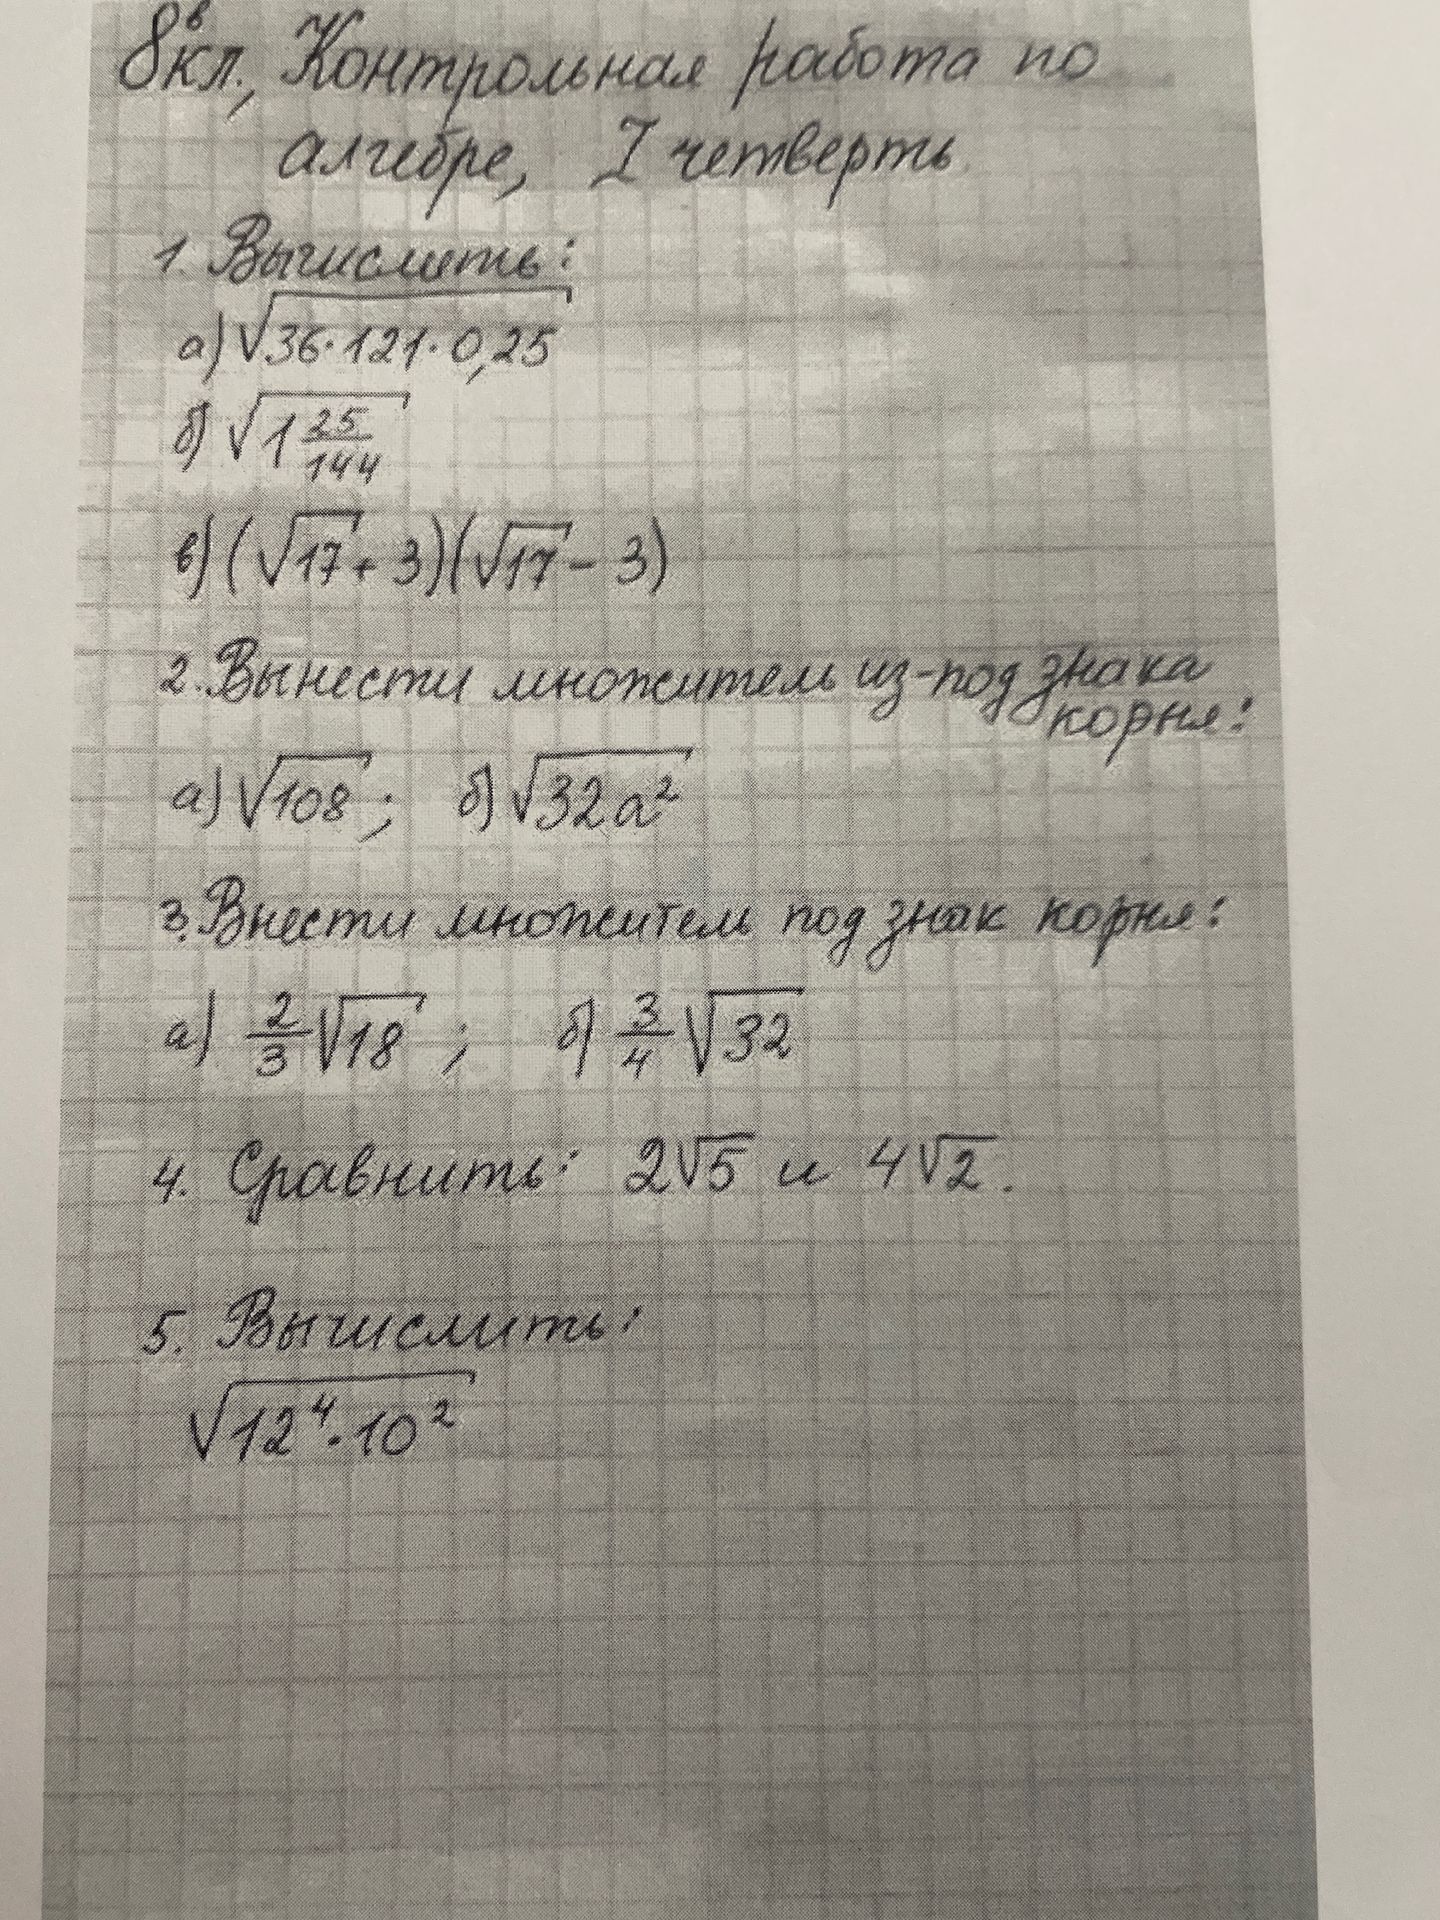 8в кл., Контрольная работа по
алгебре, I четверть.
1. Вычислить:
а) √36·121·0,25
б) √1 25/144
в) (√17 + 3)(√17 - 3)
2. Вынести множитель из-под знака
корня:
а) √108 ; б) √32a²
3. Внести множитель под знак корня:
а) 2/3 √18 ; б) 3/4 √32
4. Сравнить: 2√5 и 4√2.
5. Вычислить:
√12⁴·10²